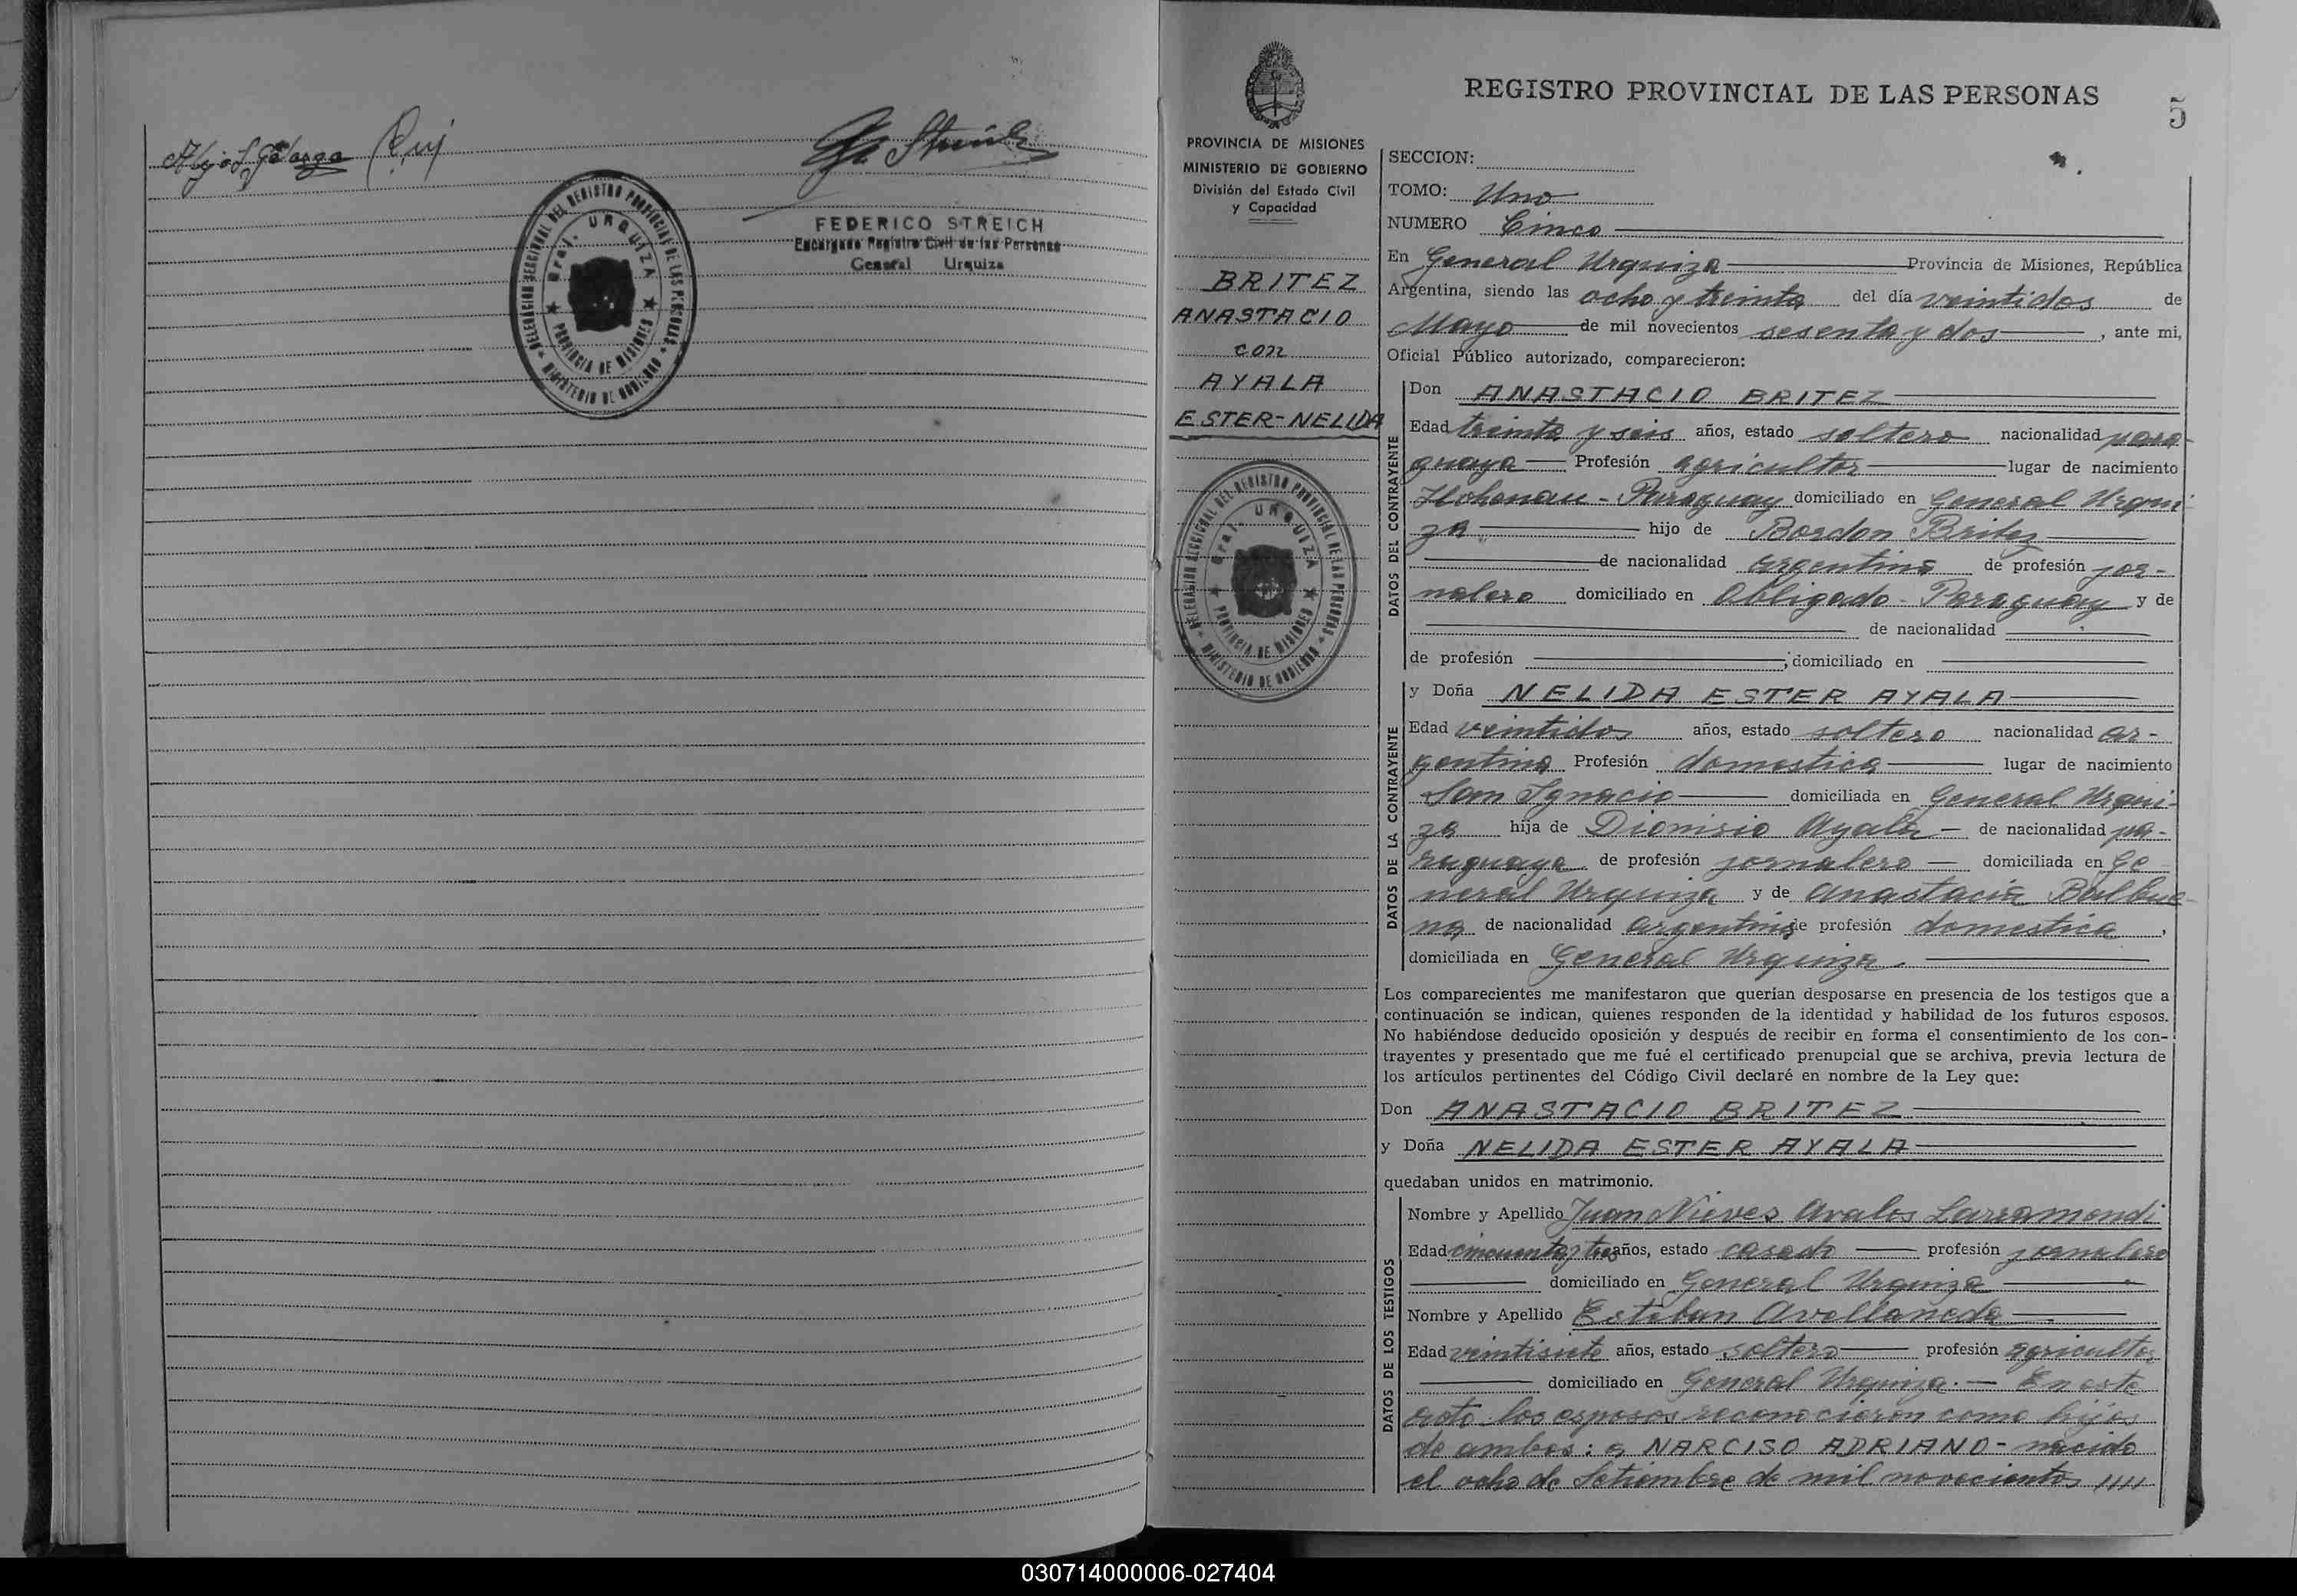 FEDERICO STREICH
Encargado Registro Civil de las Personas
General Urquiza
DELEGACION SECCIONAL DEL REGISTRO PROVINCIAL DE LAS PERSONAS
Gral. URQUIZA
PROVINCIA DE MISIONES
MINISTERIO DE GOBIERNO
PROVINCIA DE MISIONES
MINISTERIO DE GOBIERNO
División del Estado Civil
y Capacidad
BRITEZ
ANASTACIO
con
AYALA
ESTER-NELIDA
DELEGACION SECCIONAL DEL REGISTRO PROVINCIAL DE LAS PERSONAS
Gral. URQUIZA
PROVINCIA DE MISIONES
MINISTERIO DE GOBIERNO
REGISTRO PROVINCIAL DE LAS PERSONAS
5
SECCION:
TOMO: Uno
NUMERO Cinco
En General Urquiza Provincia de Misiones, República
Argentina, siendo las ocho y treinta del día veintidos de
Mayo de mil novecientos sesenta y dos, ante mi,
Oficial Público autorizado, comparecieron:
DATOS DEL CONTRAYENTE
Don ANASTACIO BRITEZ
Edad treinta y seis años, estado soltero nacionalidad para-
guaya Profesión agricultor lugar de nacimiento
Hohenau - Paraguay domiciliado en General Urqui-
za hijo de Bordon Britez
de nacionalidad argentina de profesión jor-
nalero domiciliado en Obligado - Paraguay y de
de nacionalidad
de profesión ; domiciliado en
DATOS DE LA CONTRAYENTE
y Doña NELIDA ESTER AYALA
Edad veintidos años, estado soltera nacionalidad ar-
gentina Profesión domestica lugar de nacimiento
San Ignacio domiciliada en General Urqui-
za hija de Dionisio Ayala - de nacionalidad pa-
raguaya de profesión jornalero domiciliada en Ge
neral Urquiza y de Anastacia Balbue-
na de nacionalidad argentina de profesión domestica,
domiciliada en General Urquiza.
Los comparecientes me manifestaron que querían desposarse en presencia de los testigos que a
continuación se indican, quienes responden de la identidad y habilidad de los futuros esposos.
No habiéndose deducido oposición y después de recibir en forma el consentimiento de los con-
trayentes y presentado que me fué el certificado prenupcial que se archiva, previa lectura de
los artículos pertinentes del Código Civil declaré en nombre de la Ley que:
Don ANASTACIO BRITEZ
y Doña NELIDA ESTER AYALA
quedaban unidos en matrimonio.
DATOS DE LOS TESTIGOS
Nombre y Apellido Juan Nieves Avalos Larramendi
Edad cincuenta y tres años, estado casado profesión jornalero
domiciliado en General Urquiza
Nombre y Apellido Esteban Avellaneda
Edad veintisiete años, estado soltero profesión agricultor
domiciliado en General Urquiza. - En este
acto los esposos reconocieron como hijos
de ambos: a NARCISO ADRIANO - nacido
el ocho de Setiembre de mil novecientos ////
030714000006-027404